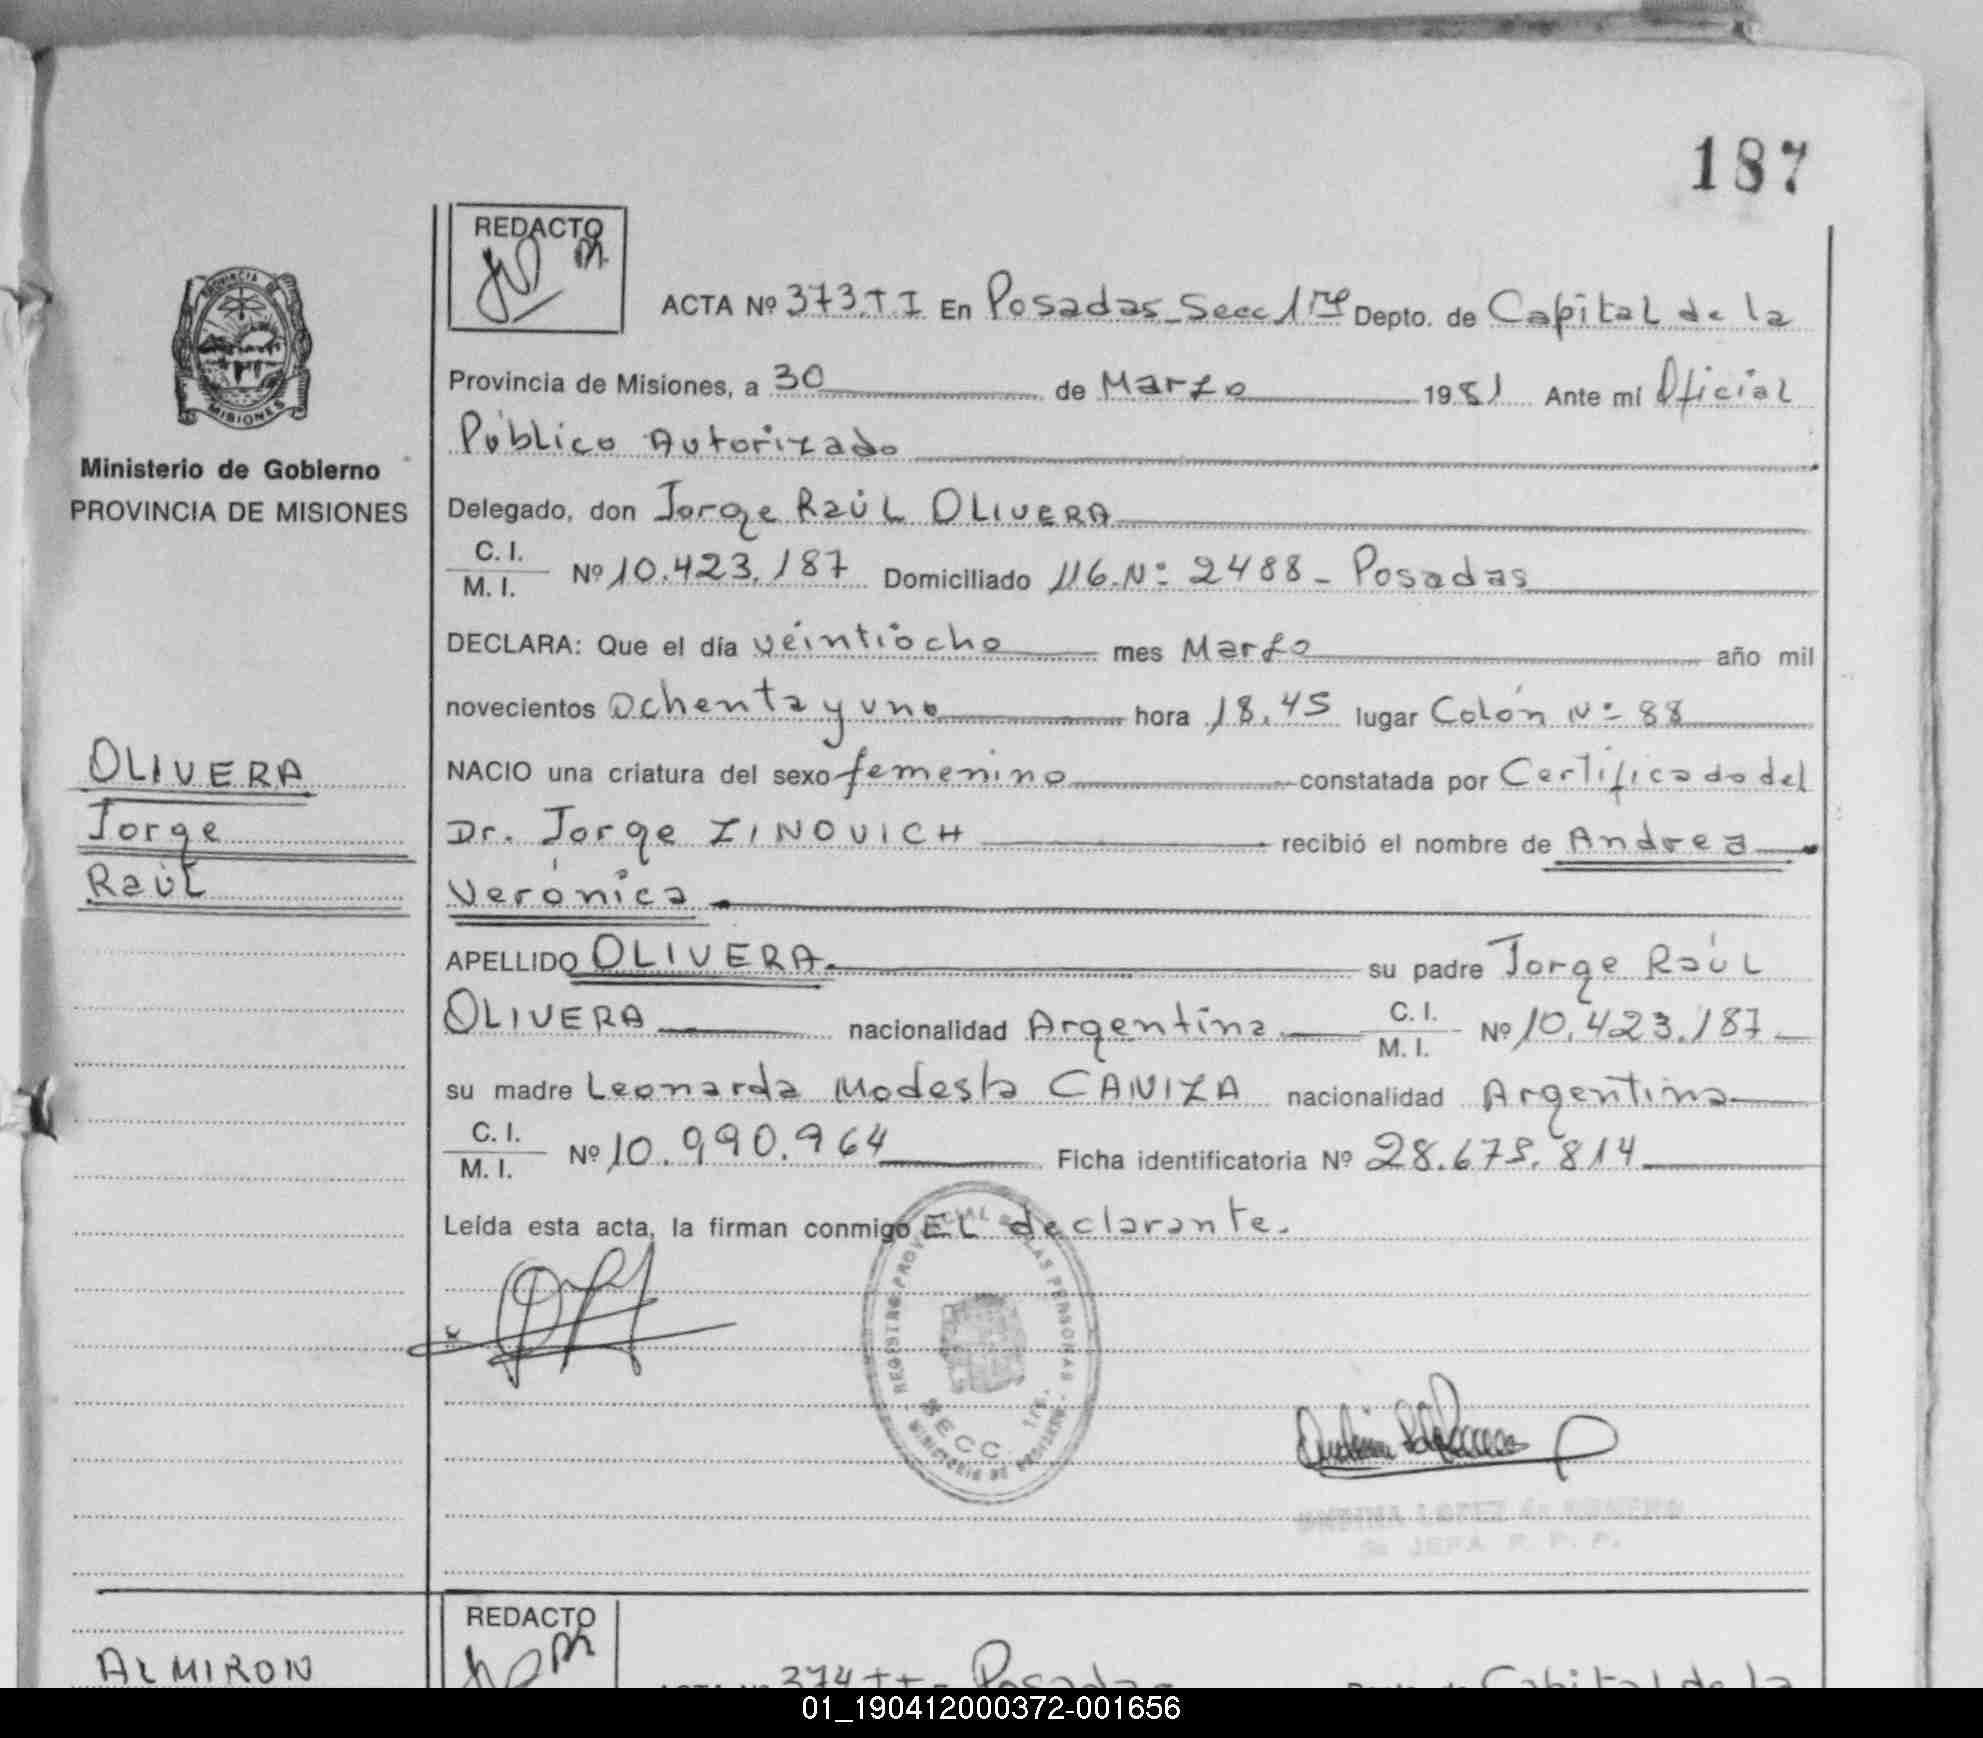 187
REDACTO
PROVINCIA DE
MISIONES
ACTA Nº 373.TI En Posadas_Secc 1ra Depto. de Capital de la
Provincia de Misiones, a 30 de Marzo 1981 Ante mí Oficial
Público Autorizado
Ministerio de Gobierno
PROVINCIA DE MISIONES
Delegado, don Jorge Raúl OLIVERA
C. I.
M. I. Nº 10.423.187 Domiciliado 116.Nº 2488 - Posadas
DECLARA: Que el día veintiocho mes Marzo año mil
novecientos Ochenta y uno hora 18.45 lugar Colón Nº 88
OLIVERA
Jorge
Raúl
NACIO una criatura del sexo femenino constatada por Certificado del
Dr. Jorge ZINOVICH recibió el nombre de Andrea
Verónica
APELLIDO OLIVERA. su padre Jorge Raúl
OLIVERA nacionalidad Argentina C. I.
M. I. Nº 10.423.187
su madre Leonarda Modesta CANIZA nacionalidad Argentina
C. I.
M. I. Nº 10.990.964 Ficha identificatoria Nº 28.675.814
Leída esta acta, la firman conmigo EL declarante.
REGISTRO PROVINCIAL DE LAS PERSONAS
SECC. 1ra.
MINISTERIO DE GOBIERNO
LOPEZ de ROMERO
JEFA R. P. P.
REDACTO
ALMIRON
374 TI Posadas Capital de la
01_190412000372-001656